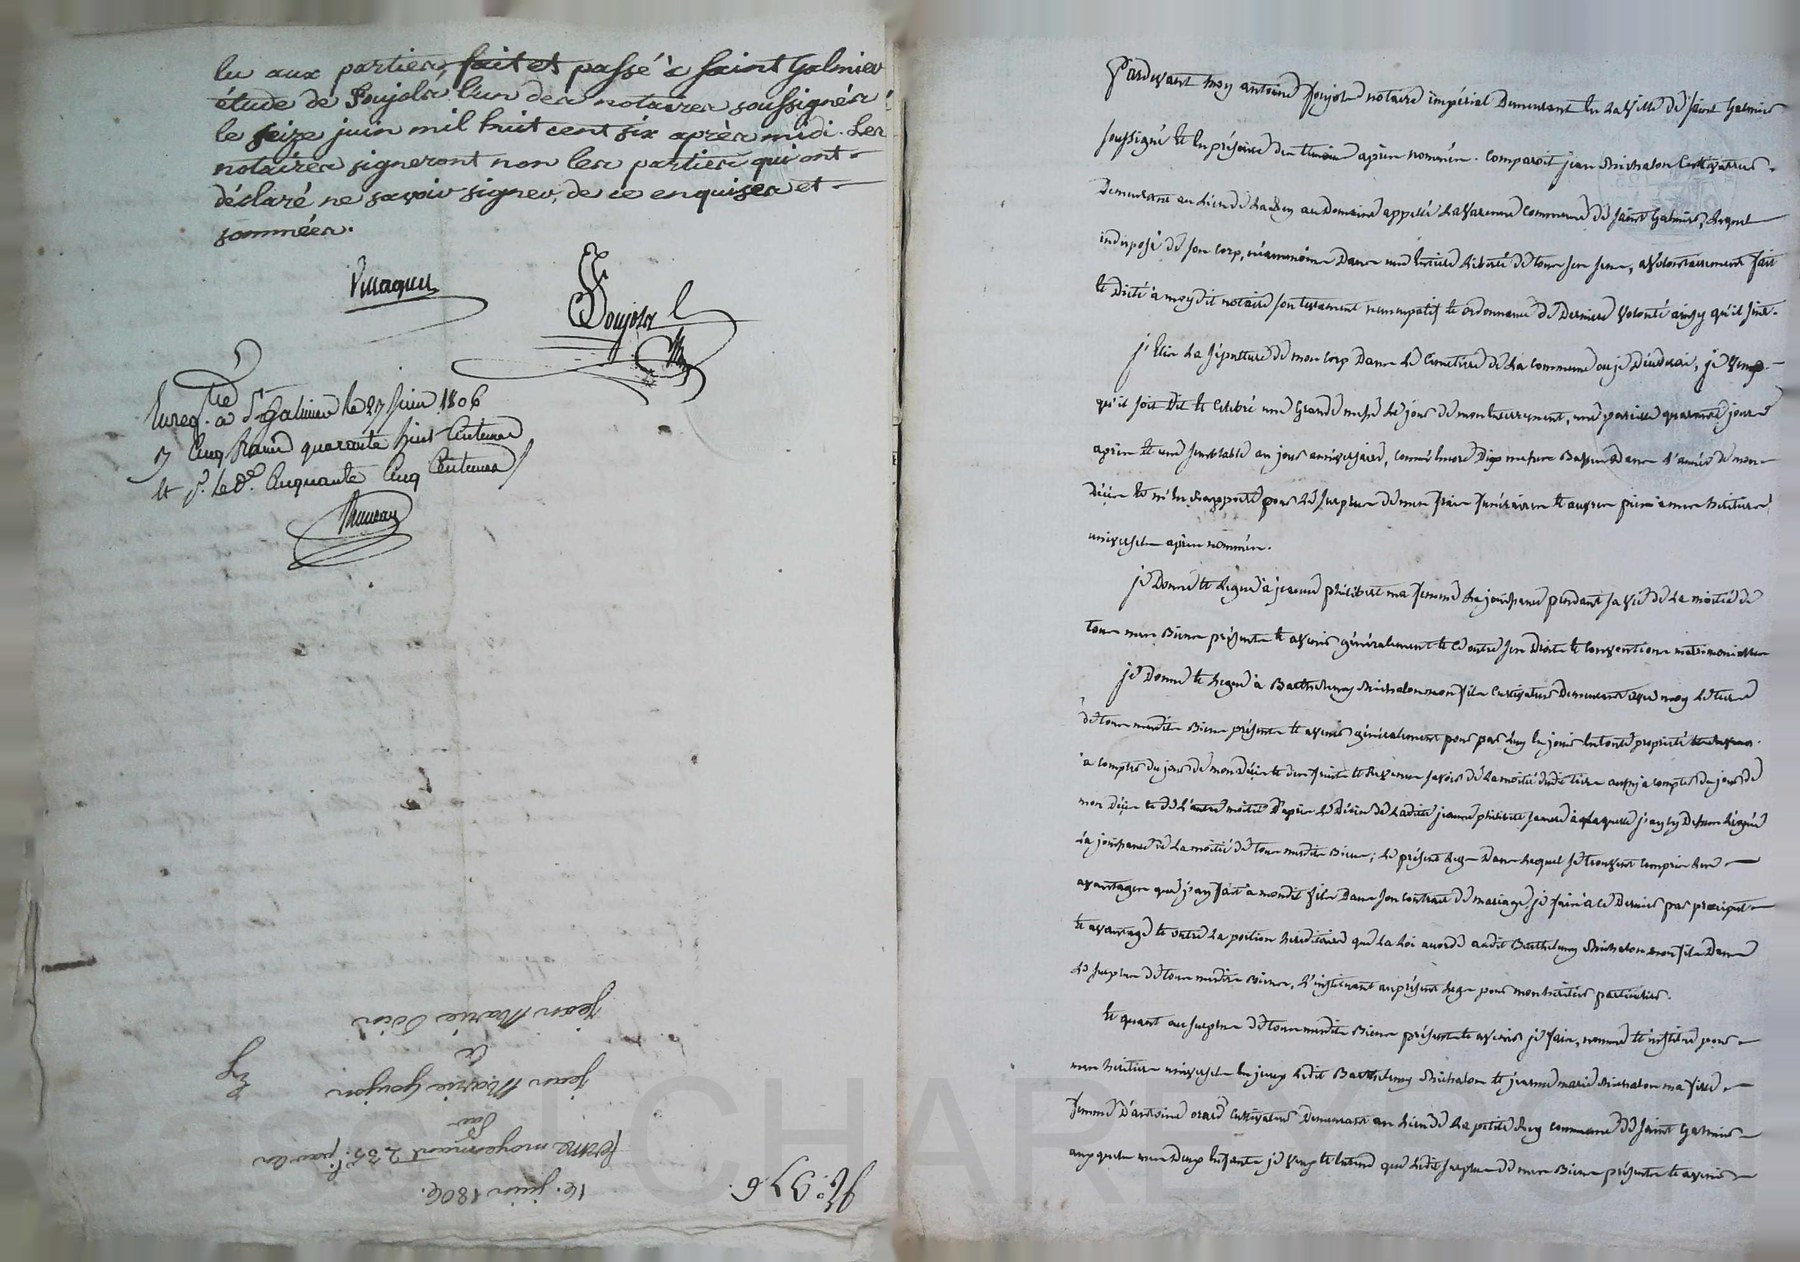 lu aux parties, fait et passé à Saint Galmier
étude de Poujols l'un des notaires soussignés
le seize juin mil huit cent six après midi. Les
notaires signeront non les parties qui ont
déclaré ne savoir signer, de ce enquises et
sommées.
Poujols
Enreg.tré à St Galmier le 27 juin 1806
cinq francs quarante huit centimes
et p. le d. cinquante cinq centimes
Pardevant moy antoine Poujols notaire impérial demeurant en la ville de Saint Galmier
soussigné et en présence des temoins après nommés. comparoit jean Michalon cultivateur
demeurant au lieu de au domaine appellé la Varenne commune de Saint Galmier, lequel
indisposé de son corps, néanmoins dans une entière liberté de tous ses sens, a volontairement fait
et dicté à moy dit notaire son testament nuncupatif et ordonnance de dernière volonté ainsy qu'il suit.
j'élis la sépulture de mon corps dans le cimetière de la commune ou je décéderai, je veux
qu'il soit dit et célébré une grande messe le jour de mon enterrement, une pareille quarante jours
après et une semblable au jour anniversaire, comme encore dix messes basses dans l'année de mon
décès et m'en rapporte pour le surplus de mes frais funéraires et œuvres pies à mes héritiers
universels après nommés.
je donne et lègue à jeanne philibert ma femme la jouissance pendant sa vie de la moitié de
tous mes biens présents et avenir généralement et ce outre ses droits et conventions matrimoniales
je donne et lègue à Barthelemy Michalon mon fils cultivateur demeurant avec moy le tiers
de tous mesdits biens présents et avenir généralement pour par luy en jouir en toute propriété
à compter du jour de mon décès et des fruits et revenus savoir de la moitié dudit tiers aussy à compter du jour de
mon décès et de l'autre moitié d'après le décès de ladite jeanne philibert sa mère à laquelle j'ay cy dessus légué
la jouissance de la moitié de tous mesdits biens; le présent legs dans lequel se trouvent compris les
avantages que j'ay fait à mondit fils dans son contrat de mariage, je fais à ce dernier par préciput
et avantage et outre la portion héréditaire que la loi accorde audit Barthelemy Michalon mon fils dans
le surplus de tous mesdits biens, l'instituant au présent legs pour mon héritier particulier.
et quant au surplus de tous mesdits biens présents et avenir je fais, nomme et institue pour
mes héritiers universels en jceux ledit Barthelemy Michalon et jeanne marie Michalon ma fille
femme d'antoine cultivateur demeurant au lieu de la petite commune de Saint Galmier
auxquels mes deux enfants je veux et entend que ledit surplus de mes biens présents et avenir
No. 376.
16. juin 1806.
ferme moyennant 235.
par
jean Marie Goujon
à
jean Marie
CHARLYRON